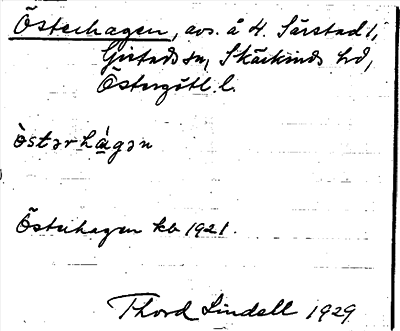 Österhagen, avs. å 4. Särstad 1,
Gistads sn, Skärkinds hd,
Östergötl. l.
östərhāgən
Österhagen kb 1921.
Thord Lindell 1929